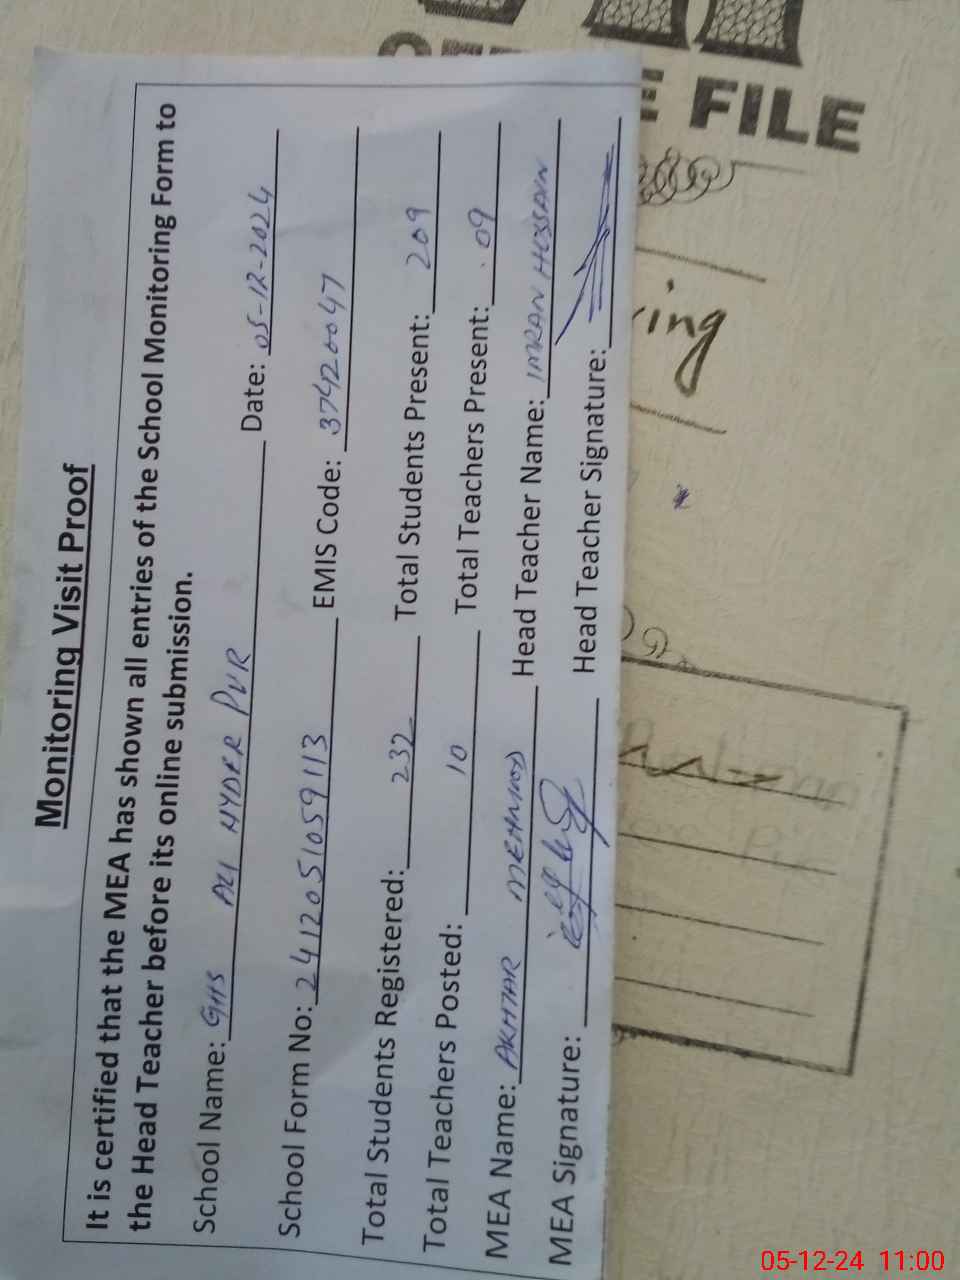 Monitoring Visit Proof
It is certified that the MEA has shown all entries of the School Monitoring Form to
the Head Teacher before its online submission.
School Name: GHS ALI HYDER PUR Date: 05-12-2024
School Form No: 2412051059113 EMIS Code: 37420047
Total Students Registered: 232 Total Students Present: 209
Total Teachers Posted: 10 Total Teachers Present: 09
MEA Name: AKHTAR MEHMOOD Head Teacher Name: IMRAN HUSSAIN
MEA Signature: Head Teacher Signature:
FILE
ing
05-12-24 11:00